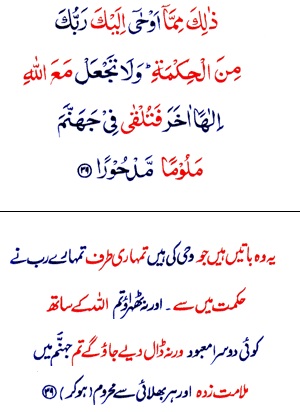 ذٰلِكَ مِمَّاۤ اَوْحٰۤى اِلَيْكَ رَبُّكَ
مِنَ الْحِكْمَةِ ؕ وَلَا تَجْعَلْ مَعَ اللّٰهِ
اِلٰهًا اٰخَرَ فَتُلْقٰى فِىْ جَهَنَّمَ
مَلُوْمًا مَّدْحُوْرًا ﴿۳۹﴾
یہ وہ باتیں ہیں جو وحی کی ہیں تمہاری طرف تمہارے رب نے
حکمت میں سے ۔ اور نہ ٹھہراؤ تم اللہ کے ساتھ
کوئی دوسرا معبود ورنہ ڈال دیے جاؤ گے تم جہنَّم میں
ملامت زدہ اور ہر بھلائی سے محروم (ہو کر) ﴿۳۹﴾